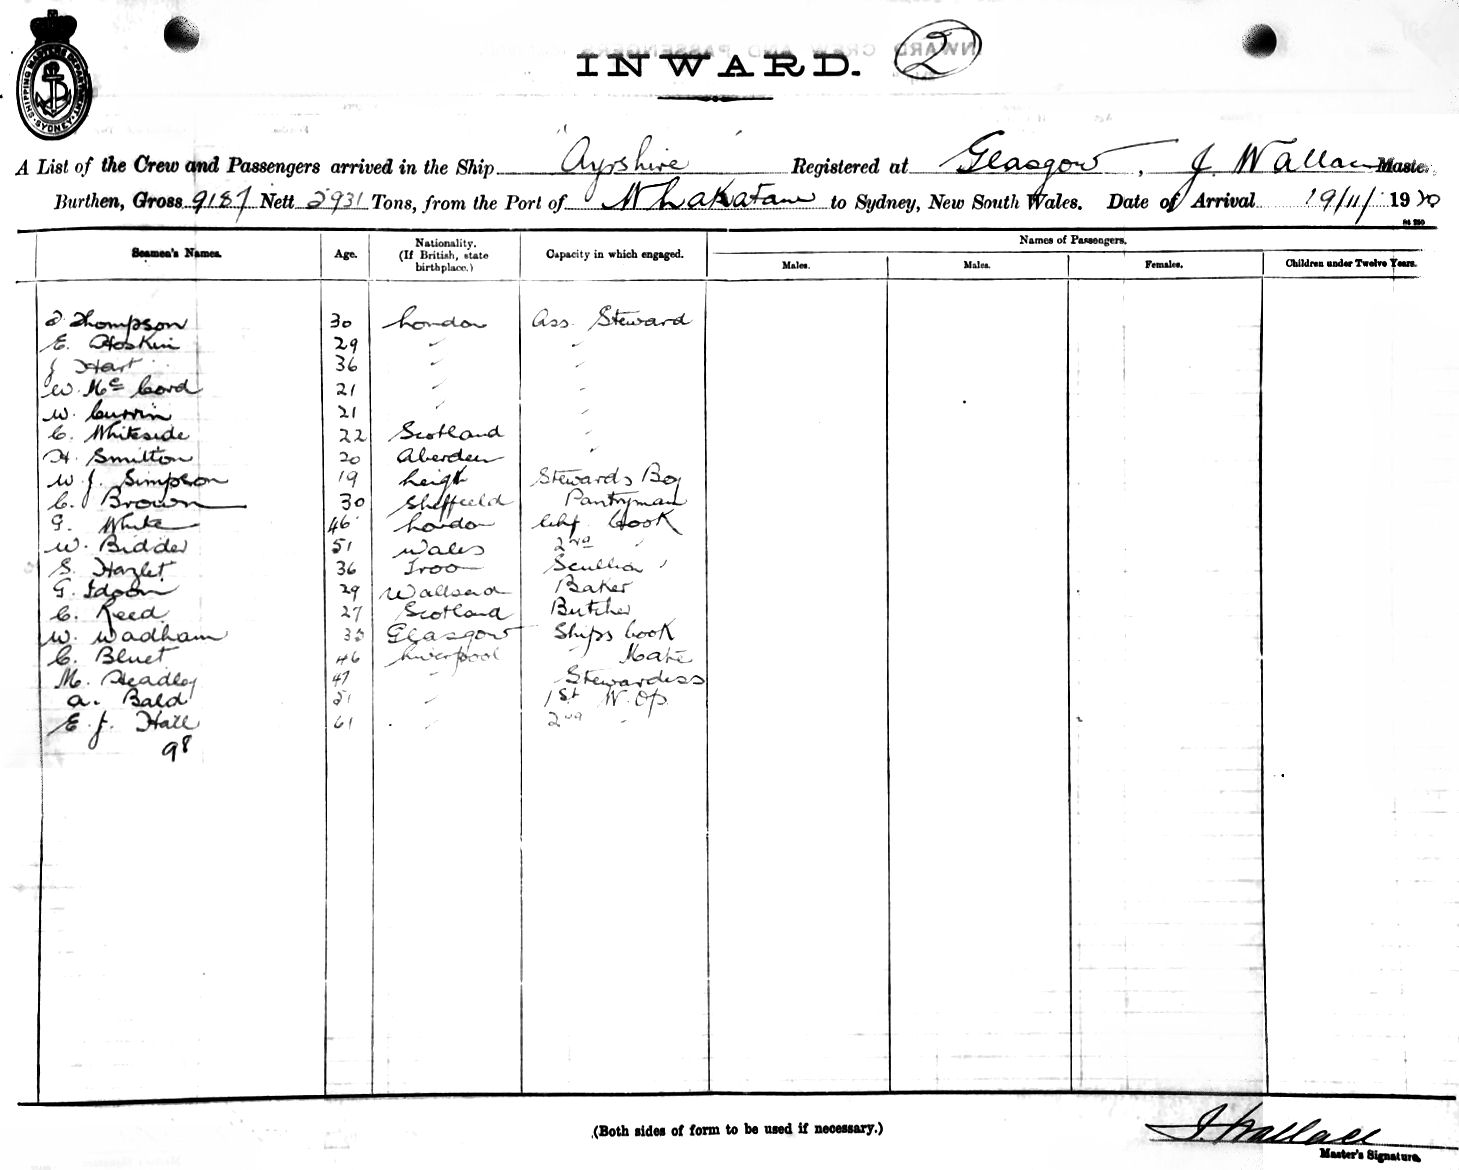 SHIPPING MASTER'S DEPARTMENT
SYDNEY
INWARD.
2
A List of the Crew and Passengers arrived in the Ship "Ayrshire" Registered at Glasgow, J. Wallace Master,
Burthen, Gross 9187 Nett 2931 Tons, from the Port of Whakatane to Sydney, New South Wales. Date of Arrival 19/11/1920
Seamen's Names. Age. Nationality. (If British, state birthplace.) Capacity in which engaged. Names of Passengers.
Males. Males. Females. Children under Twelve Years.
Thompson 30 London Ass. Steward
E. Hoskin 29 " "
J Hart 36 " "
W. Mc Cord 21 " "
W. Currin 21 " "
C. Whiteside 22 Scotland "
H. Smitton 20 Aberdeen "
W. J. Simpson 19 Leigh Stewards Boy
C. Brown 30 Sheffield Pantryman
G. White 46 London Chf. Cook
W. Bidder 51 Wales 2nd "
S. Hazlet 36 Scullion
G. Idoon 29 Baker
C. Reed 27 Scotland Butcher
W. Wadham 35 Glasgow Ships Cook
C. Bluet 46 Liverpool " Mate
M. Headley 47 " Stewardess
A. Bald 21 " 1st W. Op
E. J. Hall 61 " 2nd "
98
(Both sides of form to be used if necessary.)
J. Wallace
Master's Signature.